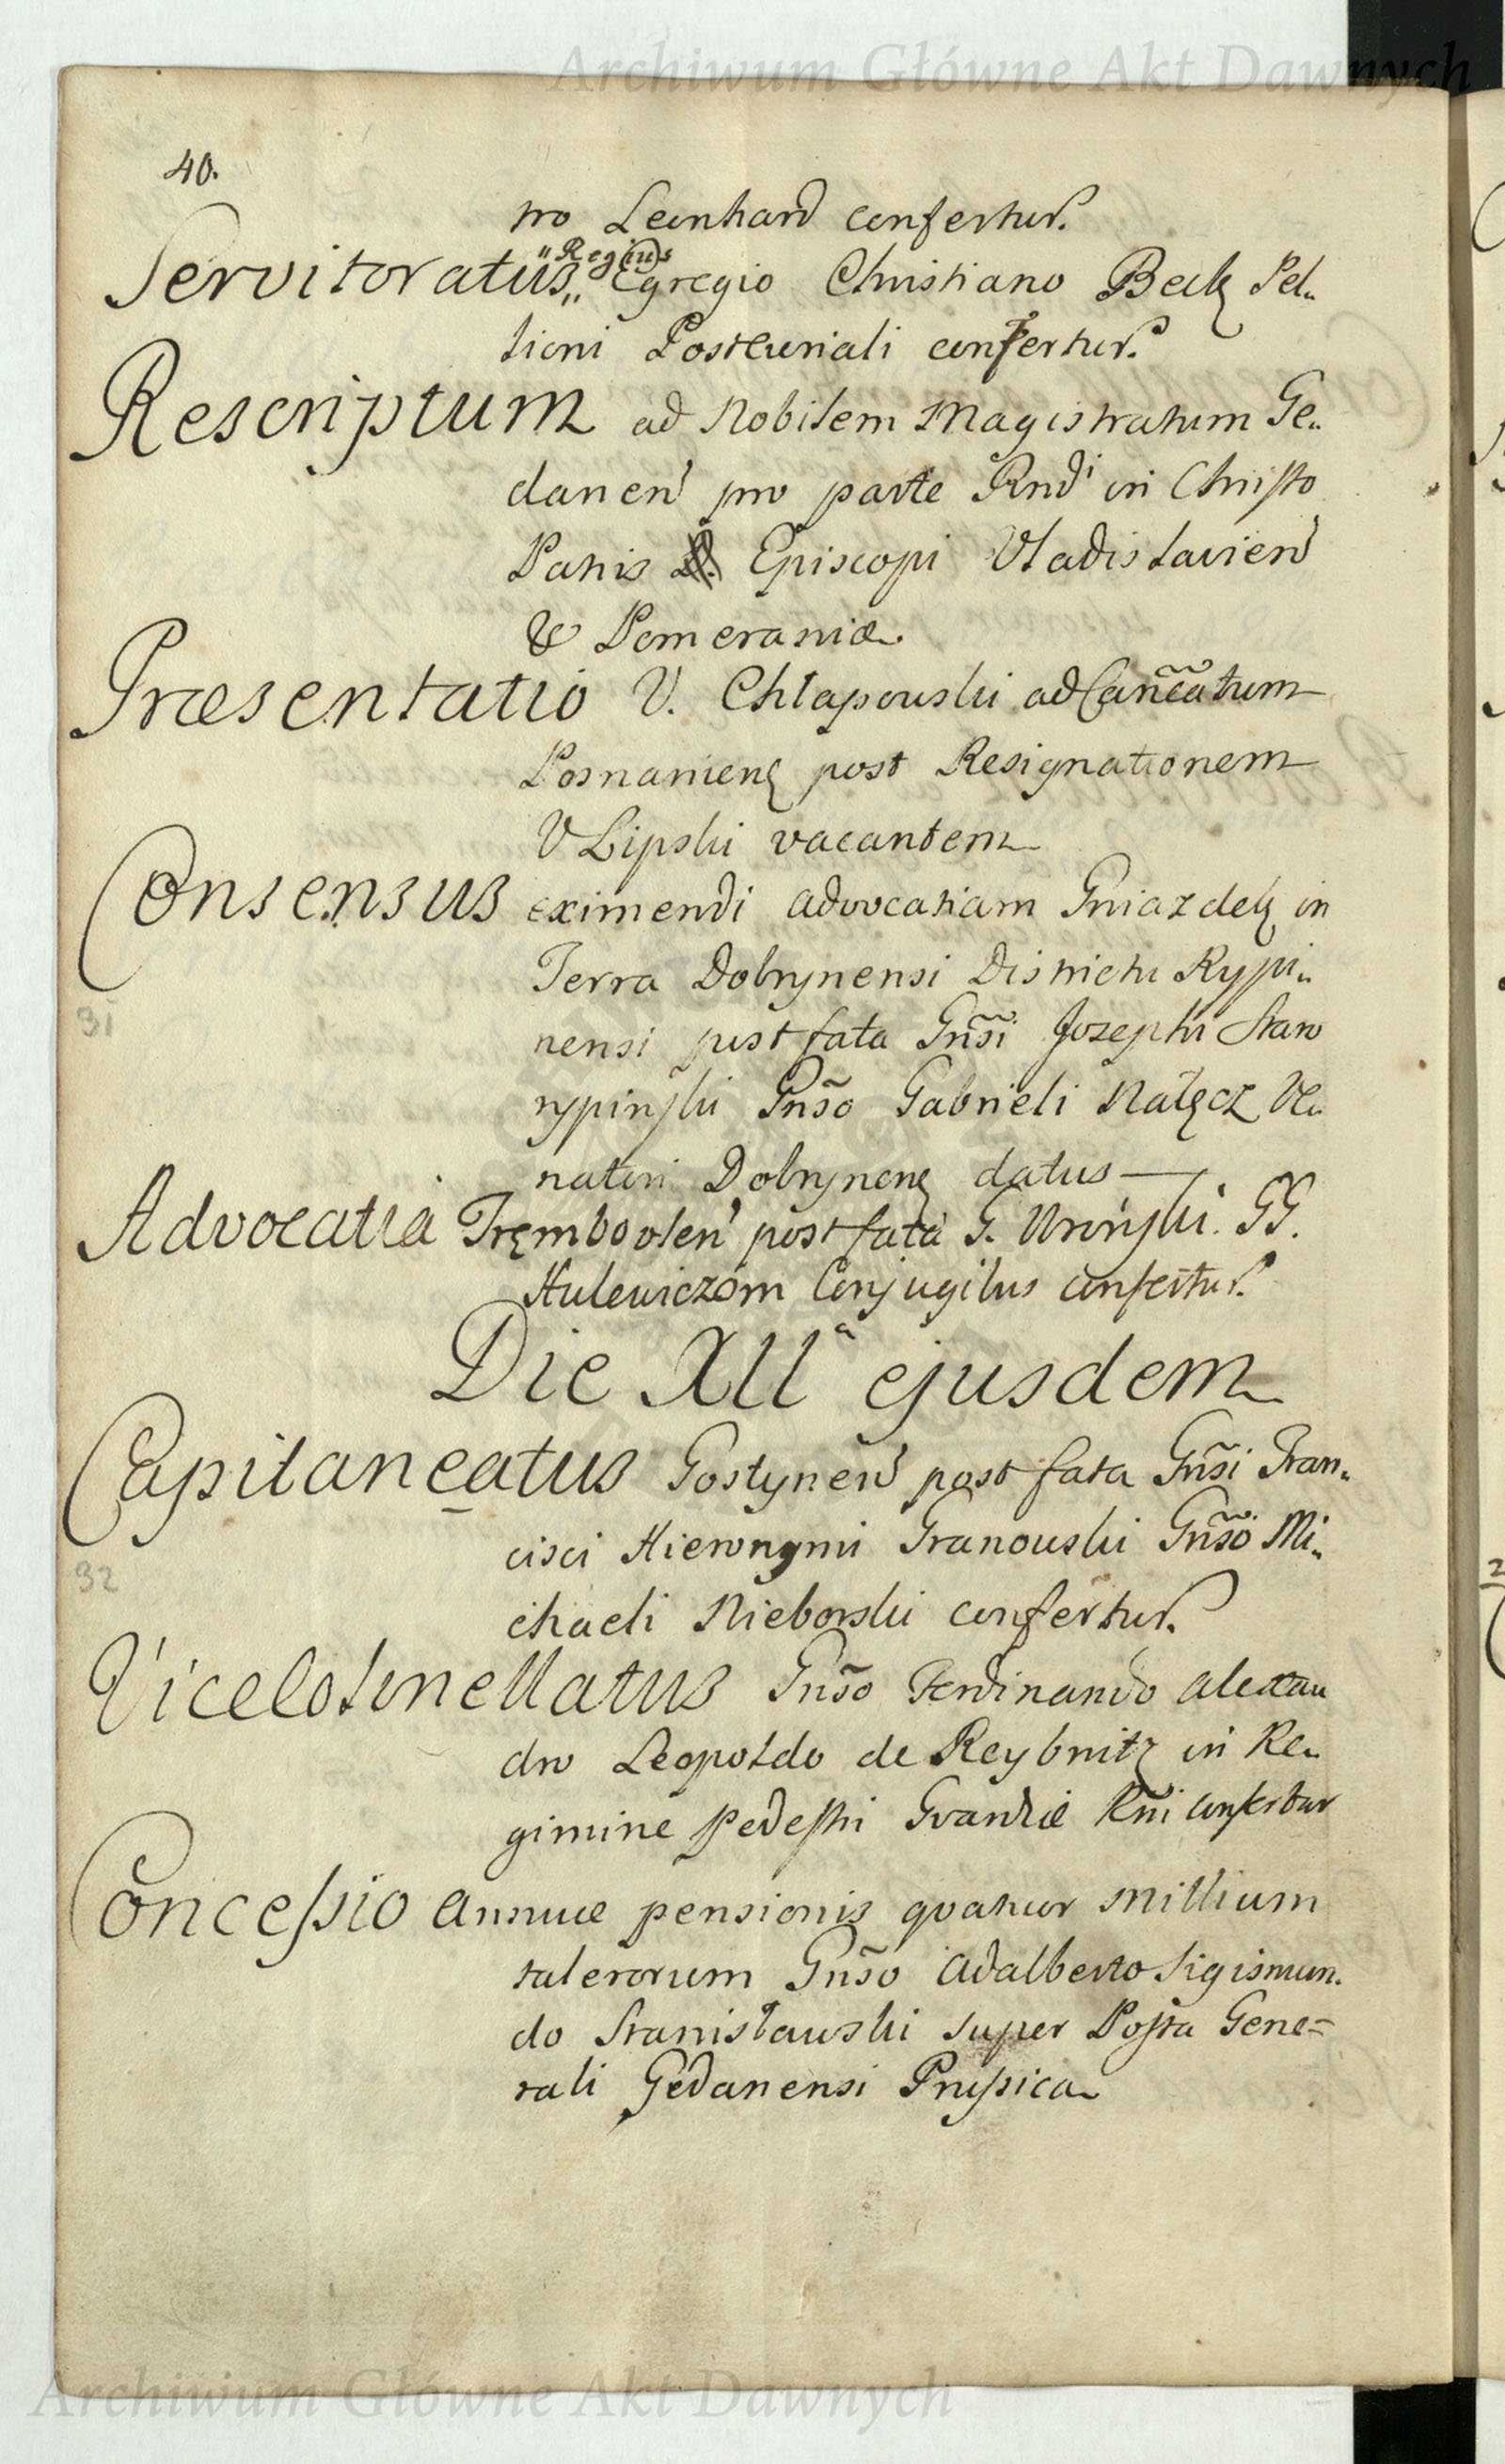 Archiwum Główne Akt Dawnych
40.
tro Leonhard confertur.
Servitoratus „Regius„ Egregio Christiano Beck Pel„
lioni Postcuriali confertur.
Rescriptum ad Nobilem Magistratum Ge„
danen pro parte Rndi in Christo
Patris Episcopi Vladislavien
& Pomeraniæ.
Præsentatio V. Chłapowski ad Cañcãtum
Posnaniens post Resignationem
V Lipski vacantem
Consensus eximendi advocatiam Gniazdek in
31
Terra Dobrynensi Districtu Rypi„
nensi post fata Gñsi Jozephi Staro
rypinski Gnso Gabrieli Nałęcz Ve„
natori Dobrynens datus
Advocatia Trembowlen post fata G. Wroński. GG.
Hulewiczom Conjugibus confertur.
Die XIIa ejusdem
Capitaneatus Gostynen post fata Gñsi Fran„
cisci Hieronymi Granowski Gñso Mi„
32
chaeli Nieborski confertur.
Vicecolonellatus Gñso Ferdinando Alexan
dro Leopoldo de Reybnitz in Re„
gimine pedestri Gvardiæ Rñi confertur
Concessio annuæ pensionis qvatuor millium
talerorum Gñso Adalberto Sigismun„
do Stanisławski super Posta Gene=
rali Gedanensi Prussica
Archiwum Główne Akt Dawnych